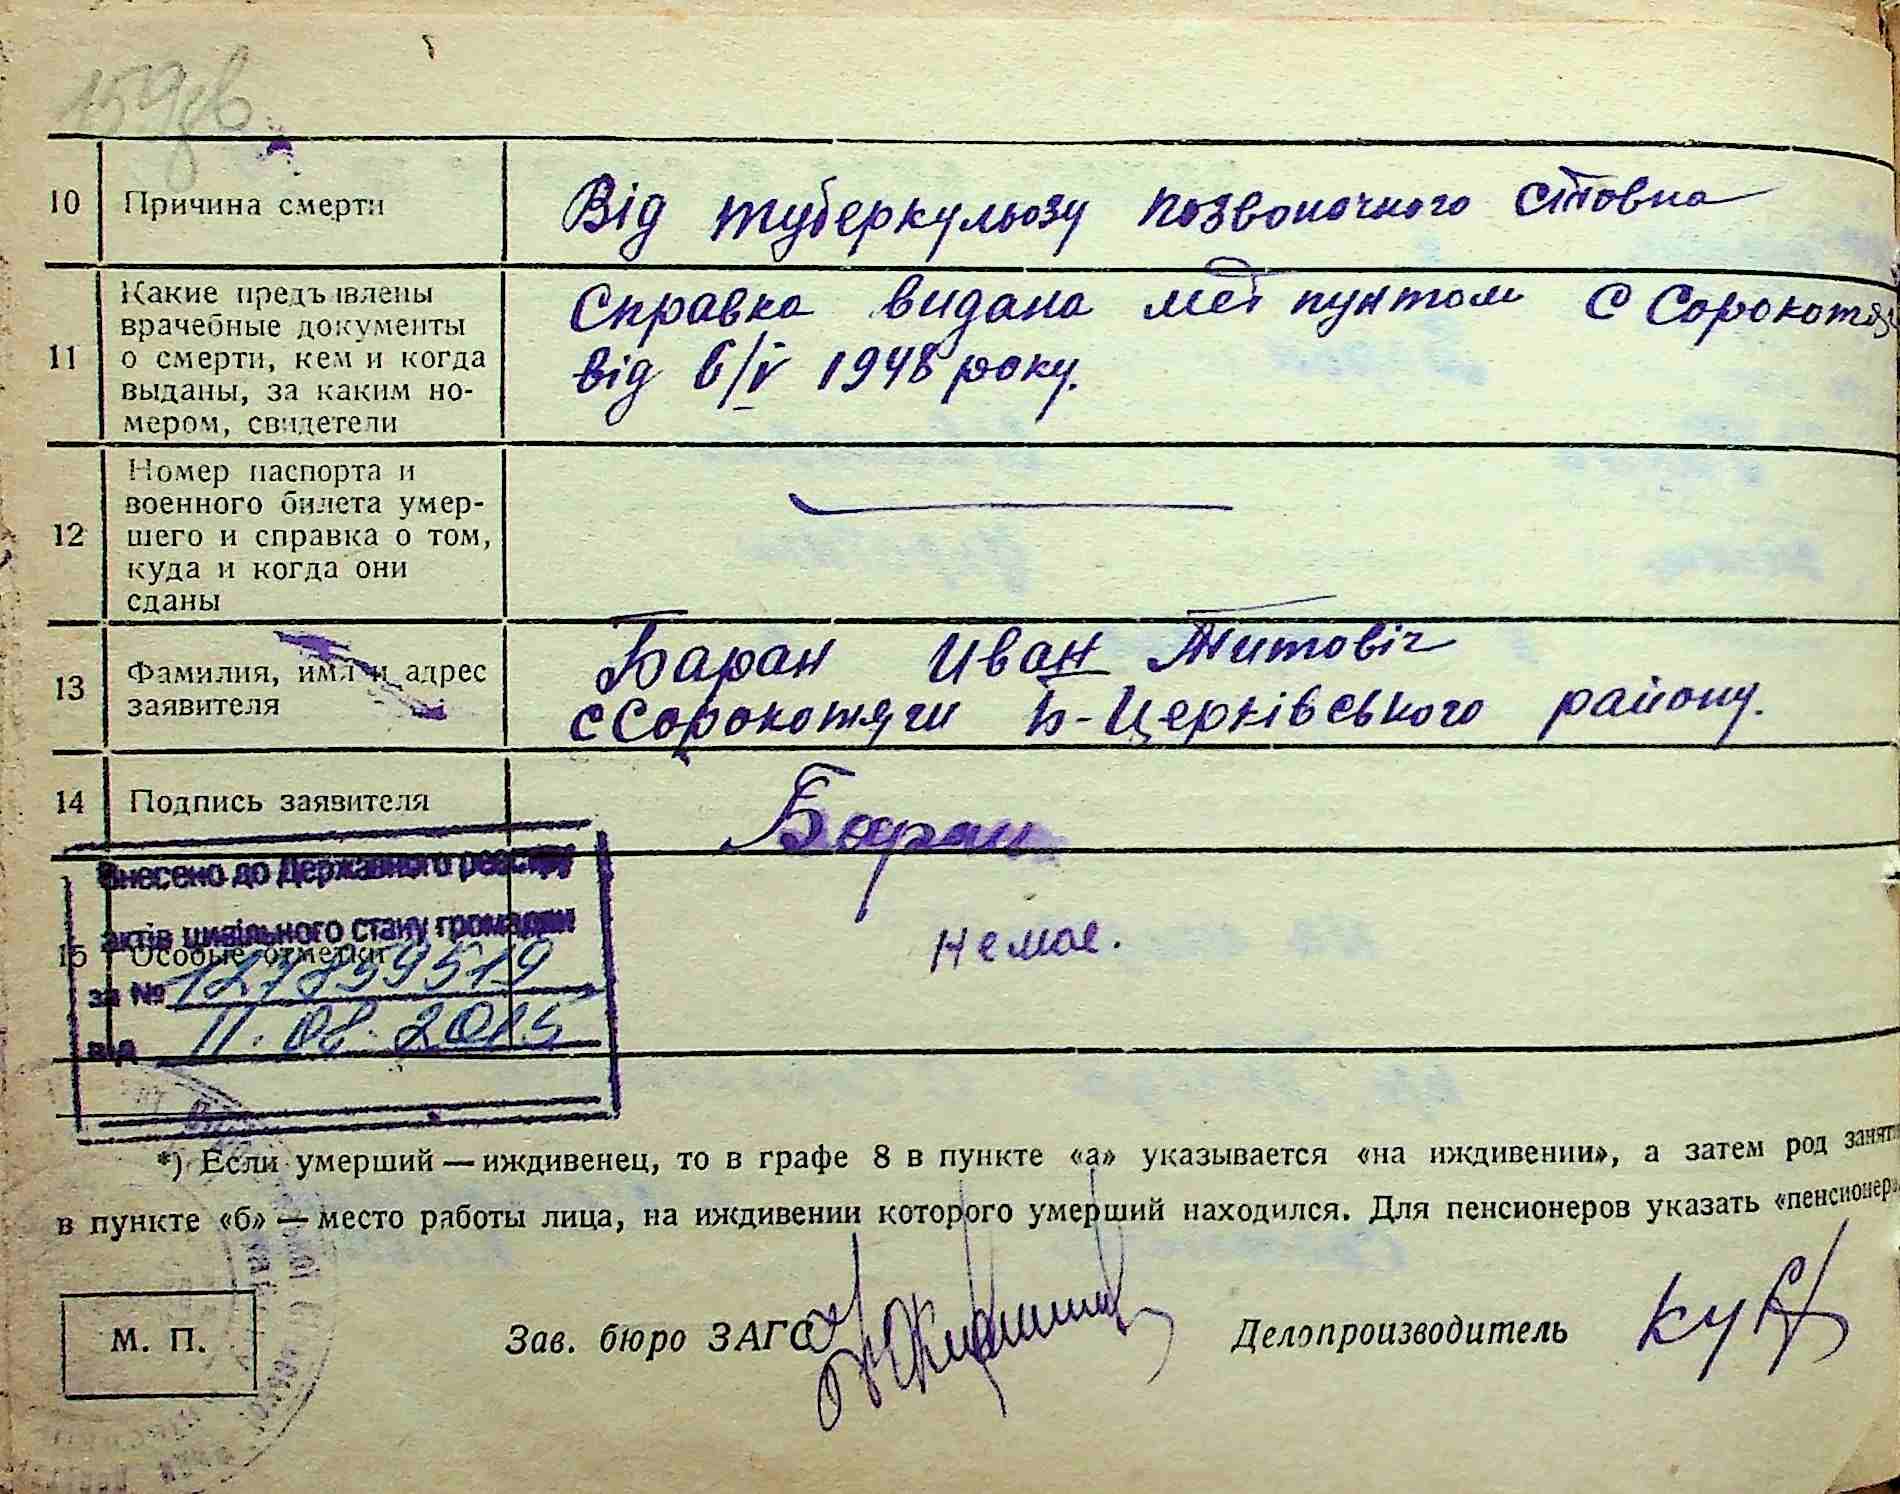 159зв
10 Причина смерти Від туберкульозу позвоночного стовпа
11 Какие предъявлены
врачебные документы
о смерти, кем и когда
выданы, за каким но-
мером, свидетели
Справка видана мед пунктом с Сорокотяг
від 6/V 1948 року.
12 Номер паспорта и
военного билета умер-
шего и справка о том,
куда и когда они
сданы
13 Фамилия, имя и адрес
заявителя
Баран Иван Титовіч
с Сорокотяги Б-Церківського району.
14 Подпись заявителя Баран
Внесено до Державного реєстру
актів цивільного стану громадян
15 Особые отметки Немає.
за №
від 11.08.2015
*) Если умерший — иждивенец, то в графе 8 в пункте «а» указывается «на иждивении», а затем род занят
в пункте «б» — место работы лица, на иждивении которого умерший находился. Для пенсионеров указать «пенсионер»
М. П. Зав. бюро ЗАГС Делопроизводитель